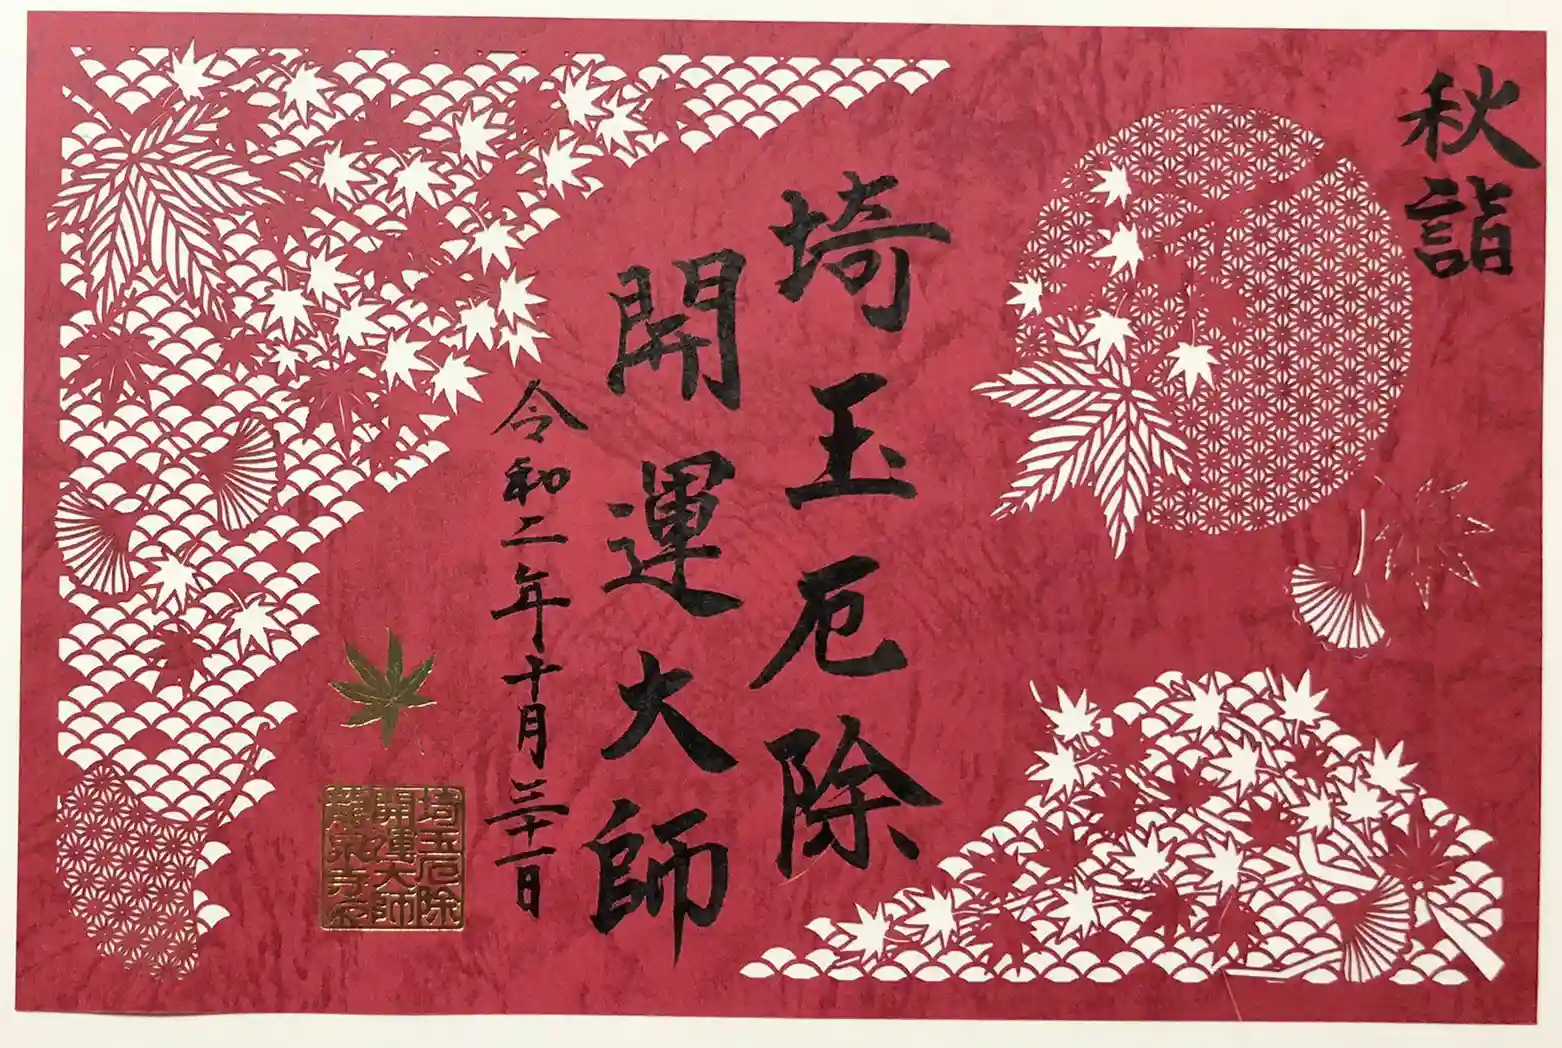 秋詣
埼玉厄除
開運大師
令和二年十月三十一日
埼玉厄除
開運大師
龍泉寺印